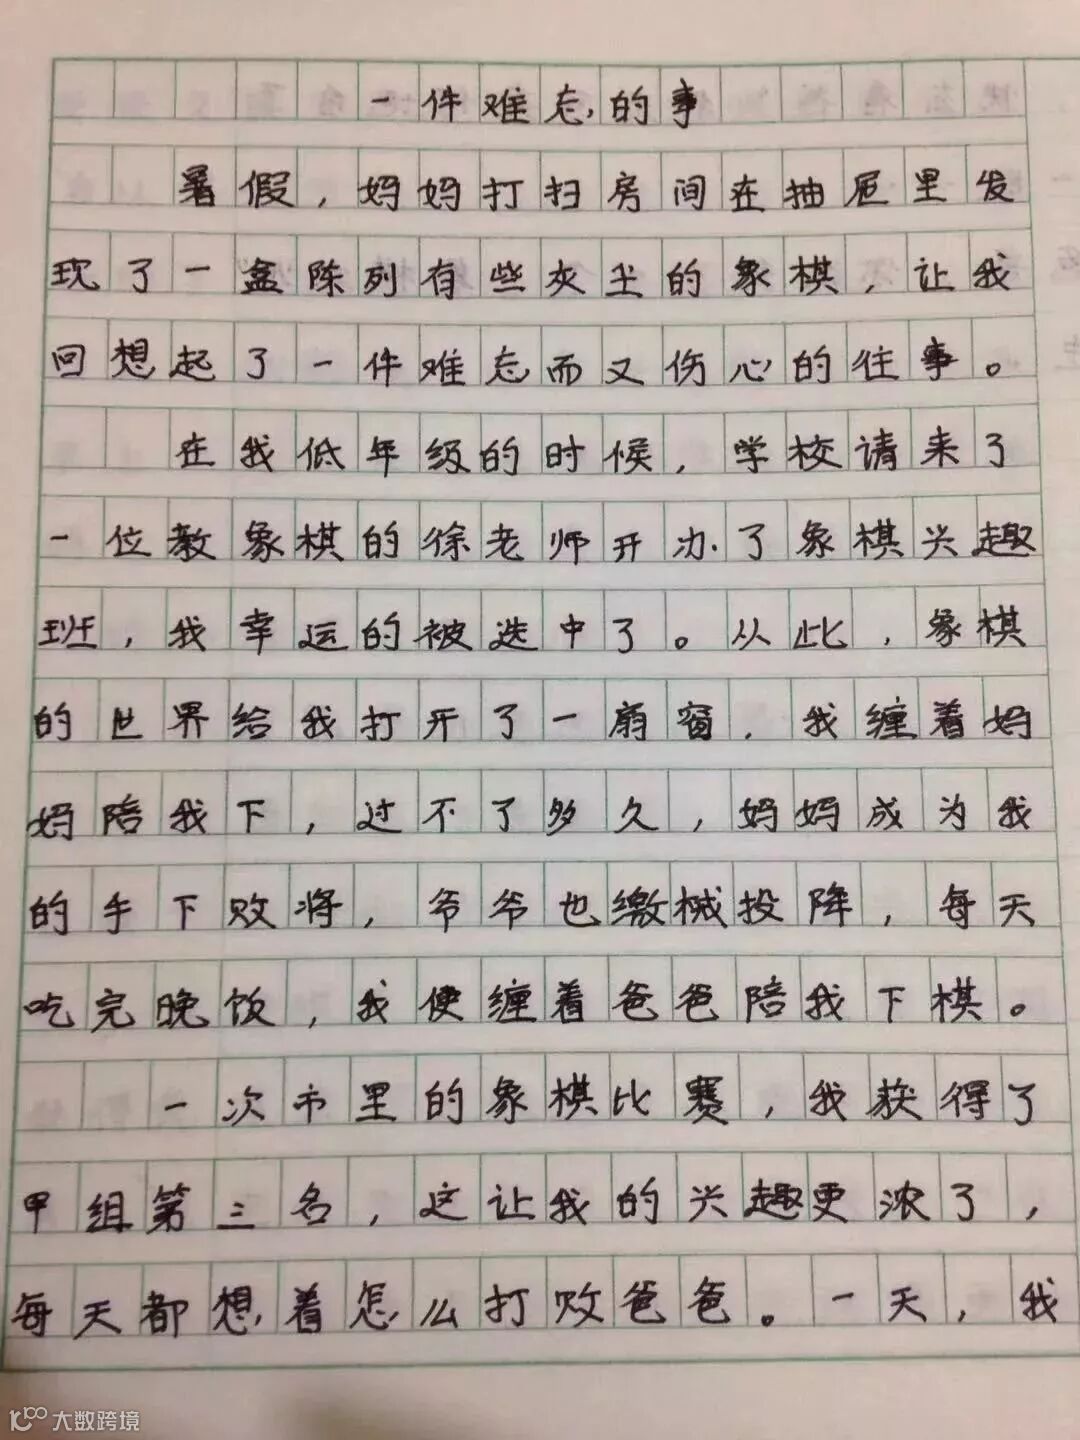 一件难忘的事
暑假，妈妈打扫房间在抽屉里发
现了一盒陈列有些灰尘的象棋，让我
回想起了一件难忘而又伤心的往事。
在我低年级的时候，学校请来了
一位教象棋的徐老师开办了象棋兴趣
班，我幸运的被选中了。从此，象棋
的世界给我打开了一扇窗，我缠着妈
妈陪我下，过不了多久，妈妈成为我
的手下败将，爷爷也缴械投降，每天
吃完晚饭，我便缠着爸爸陪我下棋。
一次市里的象棋比赛，我获得了
甲组第三名，这让我的兴趣更浓了，
每天都想着怎么打败爸爸。一天，我
大数跨境